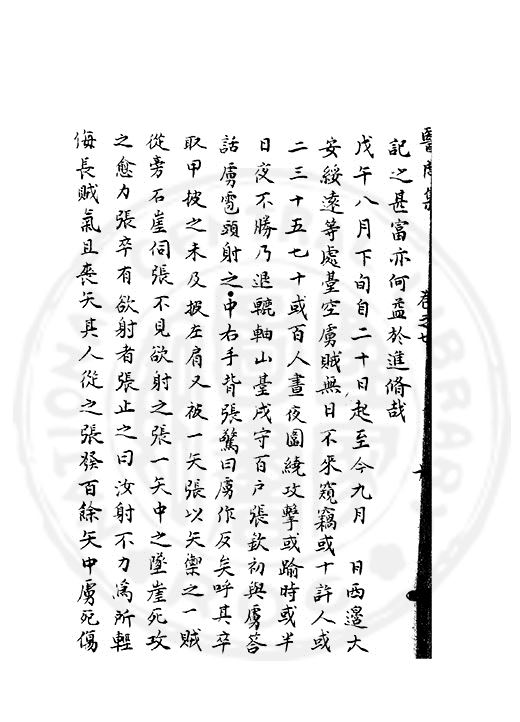 醫閭集 卷之七
記之甚富亦何益於進脩哉
戊午八月下旬自二十日起至今九月 日西邊大
安綏遠等處臺空虜賊無日不來窺竊或十許人或
二三十五七十或百人晝夜圍繞攻擊或踰時或半
日夜不勝乃退轆軸山臺戍守百戶張欽初與虜答
話虜雹頭射之中右手背張驚曰虜作反矣呼其卒
取甲披之未及披左肩又被一矢張以矢禦之一賊
從旁石崖伺張不見欲射之張一矢中之墜崖死攻
之愈力張卒有欲射者張止之曰汝射不力為所輕
侮長賊氣且喪矢其人從之張發百餘矢中虜死傷